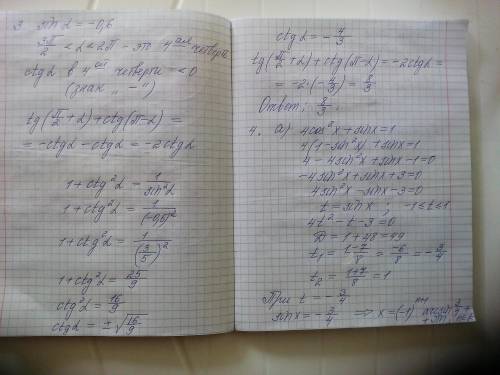 3. sin α = -0,6
3π/2 < α < 2π - это 4 ая четверть
ctg α в 4 ой четверти = < 0
(знак „ - ")
tg(π/2 + α) + ctg(π - α) =
= -ctg α - ctg α = -2ctg α
1 + ctg² α = 1/sin² α
1 + ctg² α = 1/(-0,6)²
1 + ctg² α = 1/(3/5)²
1 + ctg² α = 25/9
ctg² α = 16/9
ctg α = ± √16/9
ctg α = - 4/3
tg(π/2 + α) + ctg(π - α) = -2ctg α =
= -2·(-4/3) = 8/3
Ответ: 8/3.
4. а) 4cos² x + sin x = 1
4(1 - sin² x) + sin x = 1
4 - 4sin² x + sin x - 1 = 0
-4sin² x + sin x + 3 = 0
4sin² x - sin x - 3 = 0
t = sin x ; -1 ≤ t ≤ 1
4t² - t - 3 = 0
D = 1 + 48 = 49
t₁ = 1-7/8 = -6/8 = -3/4
t₂ = 1+7/8 = 1
При t = -3/4
sin x = -3/4 ⇒ x = (-1)ⁿ⁺¹ arcsin 3/4 +
+ πn,